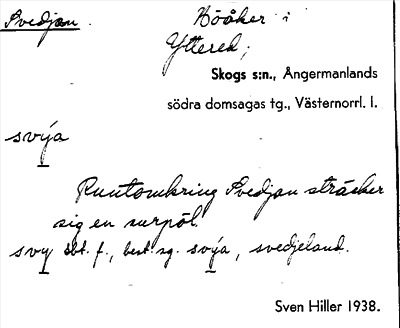 Svedjan
Bååker i
Yttered;
Skogs s:n., Ångermanlands
södra domsagas tg., Västernorrl. l.
svýa
Runtomkring Svedjan sträcker
sig en surpöl.
svy sbt. f., best. sg. svýa, svedjeland.
Sven Hiller 1938.